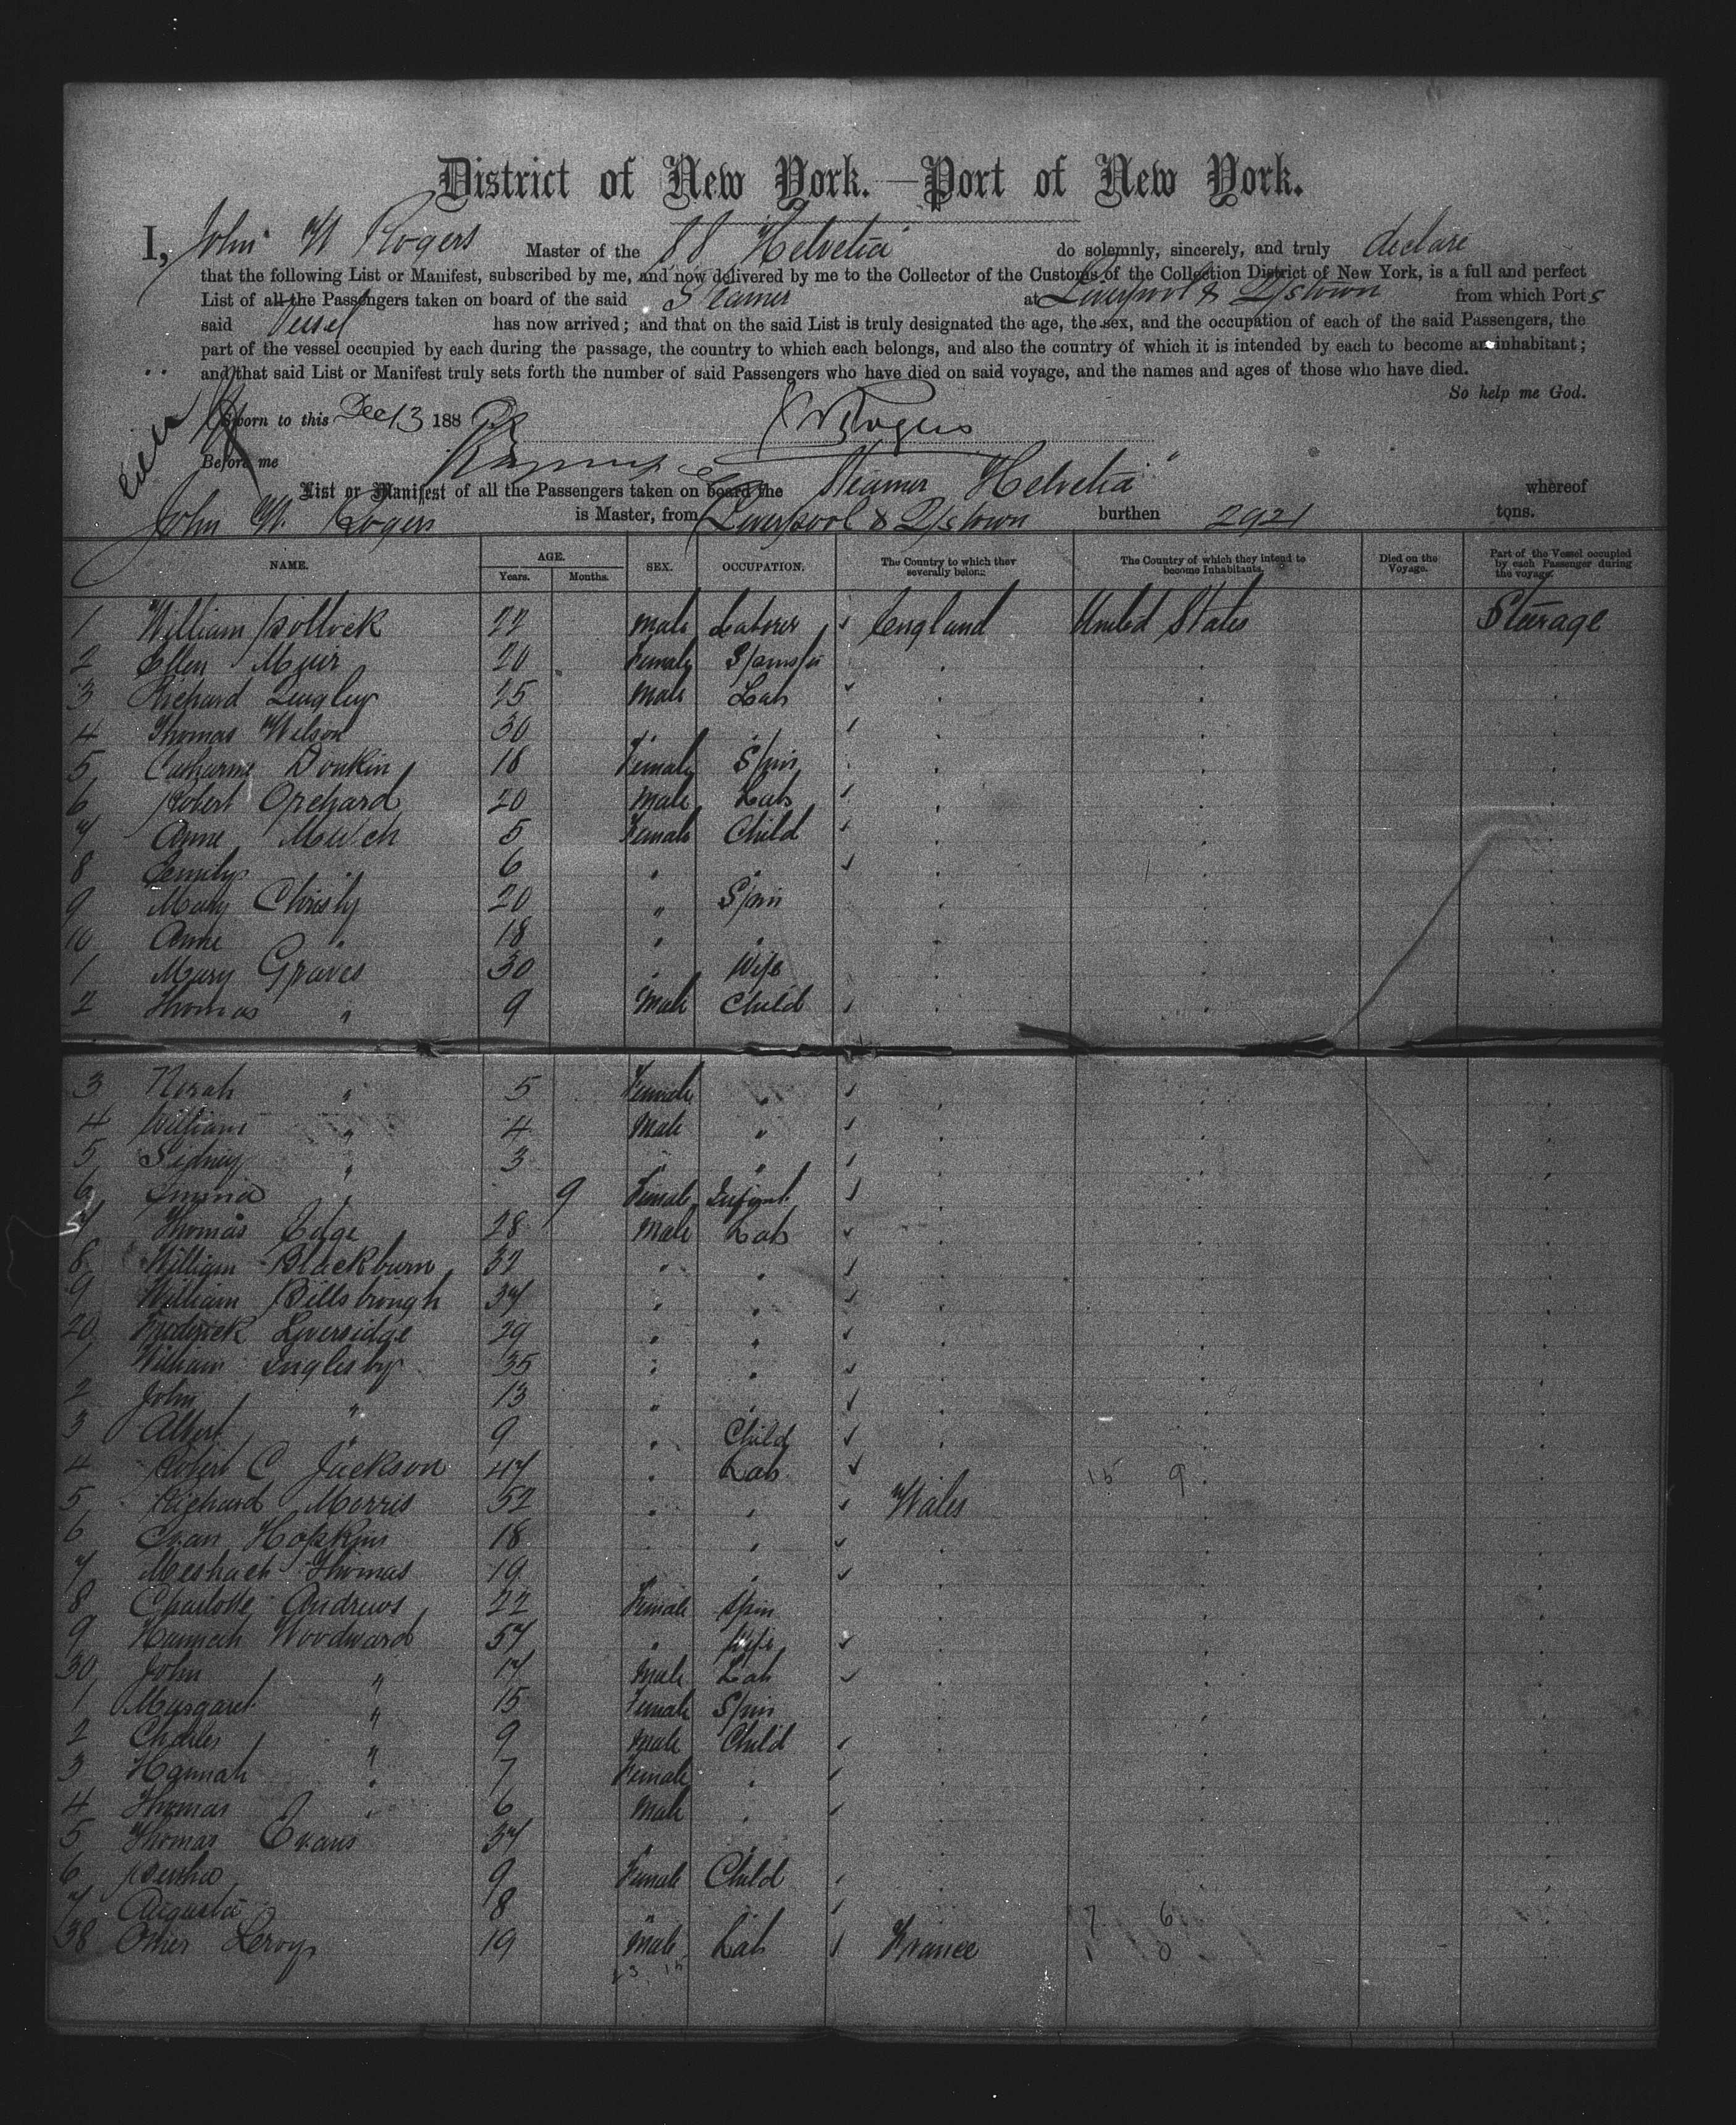 District of New York.—Port of New York.
I, John W Rogers Master of the SS "Helvetia" do solemnly, sincerely, and truly declare
that the following List or Manifest, subscribed by me, and now delivered by me to the Collector of the Customs of the Collection District of New York, is a full and perfect
List of all the Passengers taken on board of the said Steamer at Liverpool & Q/stown from which Ports
said Vessel has now arrived; and that on the said List is truly designated the age, the sex, and the occupation of each of the said Passengers, the
part of the vessel occupied by each during the passage, the country to which each belongs, and also the country of which it is intended by each to become an inhabitant;
and that said List or Manifest truly sets forth the number of said Passengers who have died on said voyage, and the names and ages of those who have died.
So help me God.
Sworn to this Dec 13 188 J W Rogers
Before me
List or Manifest of all the Passengers taken on board the Steamer "Helvetia" whereof
John W. Rogers is Master, from Liverpool & Q/stown burthen 2921 tons.
NAME. AGE. Years. Months. SEX. OCCUPATION. The Country to which they severally belong. The Country of which they intend to become Inhabitants. Died on the Voyage. Part of the Vessel occupied by each Passenger during the voyage.
1 William Pollock 22 Male Laborer England United States Steerage
2 Ellen Muir 20 Female Spinster
3 Richard 25 Male Lab
4 Thomas Wilson 30
5 Catharine Donkin 18 Female Spin
6 Robert Orchard 20 Male Lab
7 Anne Mutch 5 Female Child
8 Emily " 6 " "
9 Mary Christy 20 " Spin
10 Anne " 18 " "
1 Mary Graves 30 Wife
2 Thomas " 9 Male Child
3 Norah " 5 Female "
4 William " 4 Male "
5 Sidney " 3 " "
6 Emma " 9 Female Infant
7 Thomas Edge 28 Male Lab
8 William Blackburn 32 " "
9 William Billsbrough 37 " "
20 Frederick Liversidge 29 " "
1 William Inglesby 35 " "
2 John " 13 " "
3 Albert " 9 " Child
4 Robert C Jackson 47 " Lab 15 9
5 Richard Morris 52 " " Wales
6 Evan Hopkins 18 " "
7 Meshach Thomas 19 "
8 Charlotte Andrews 22 Female Spin
9 Hannah Woodward 57 " Wife
30 John " 17 Male Lab
1 Margaret " 15 Female Spin
2 Charles " 9 Male Child
3 Hannah " 7 Female "
4 Thomas " 6 Male "
5 Thomas Evans 37
6 Bertha 9 Female Child
7 Augusta 8 " " 7 6
38 Omer Leroy 19 Male Lab France 1 0